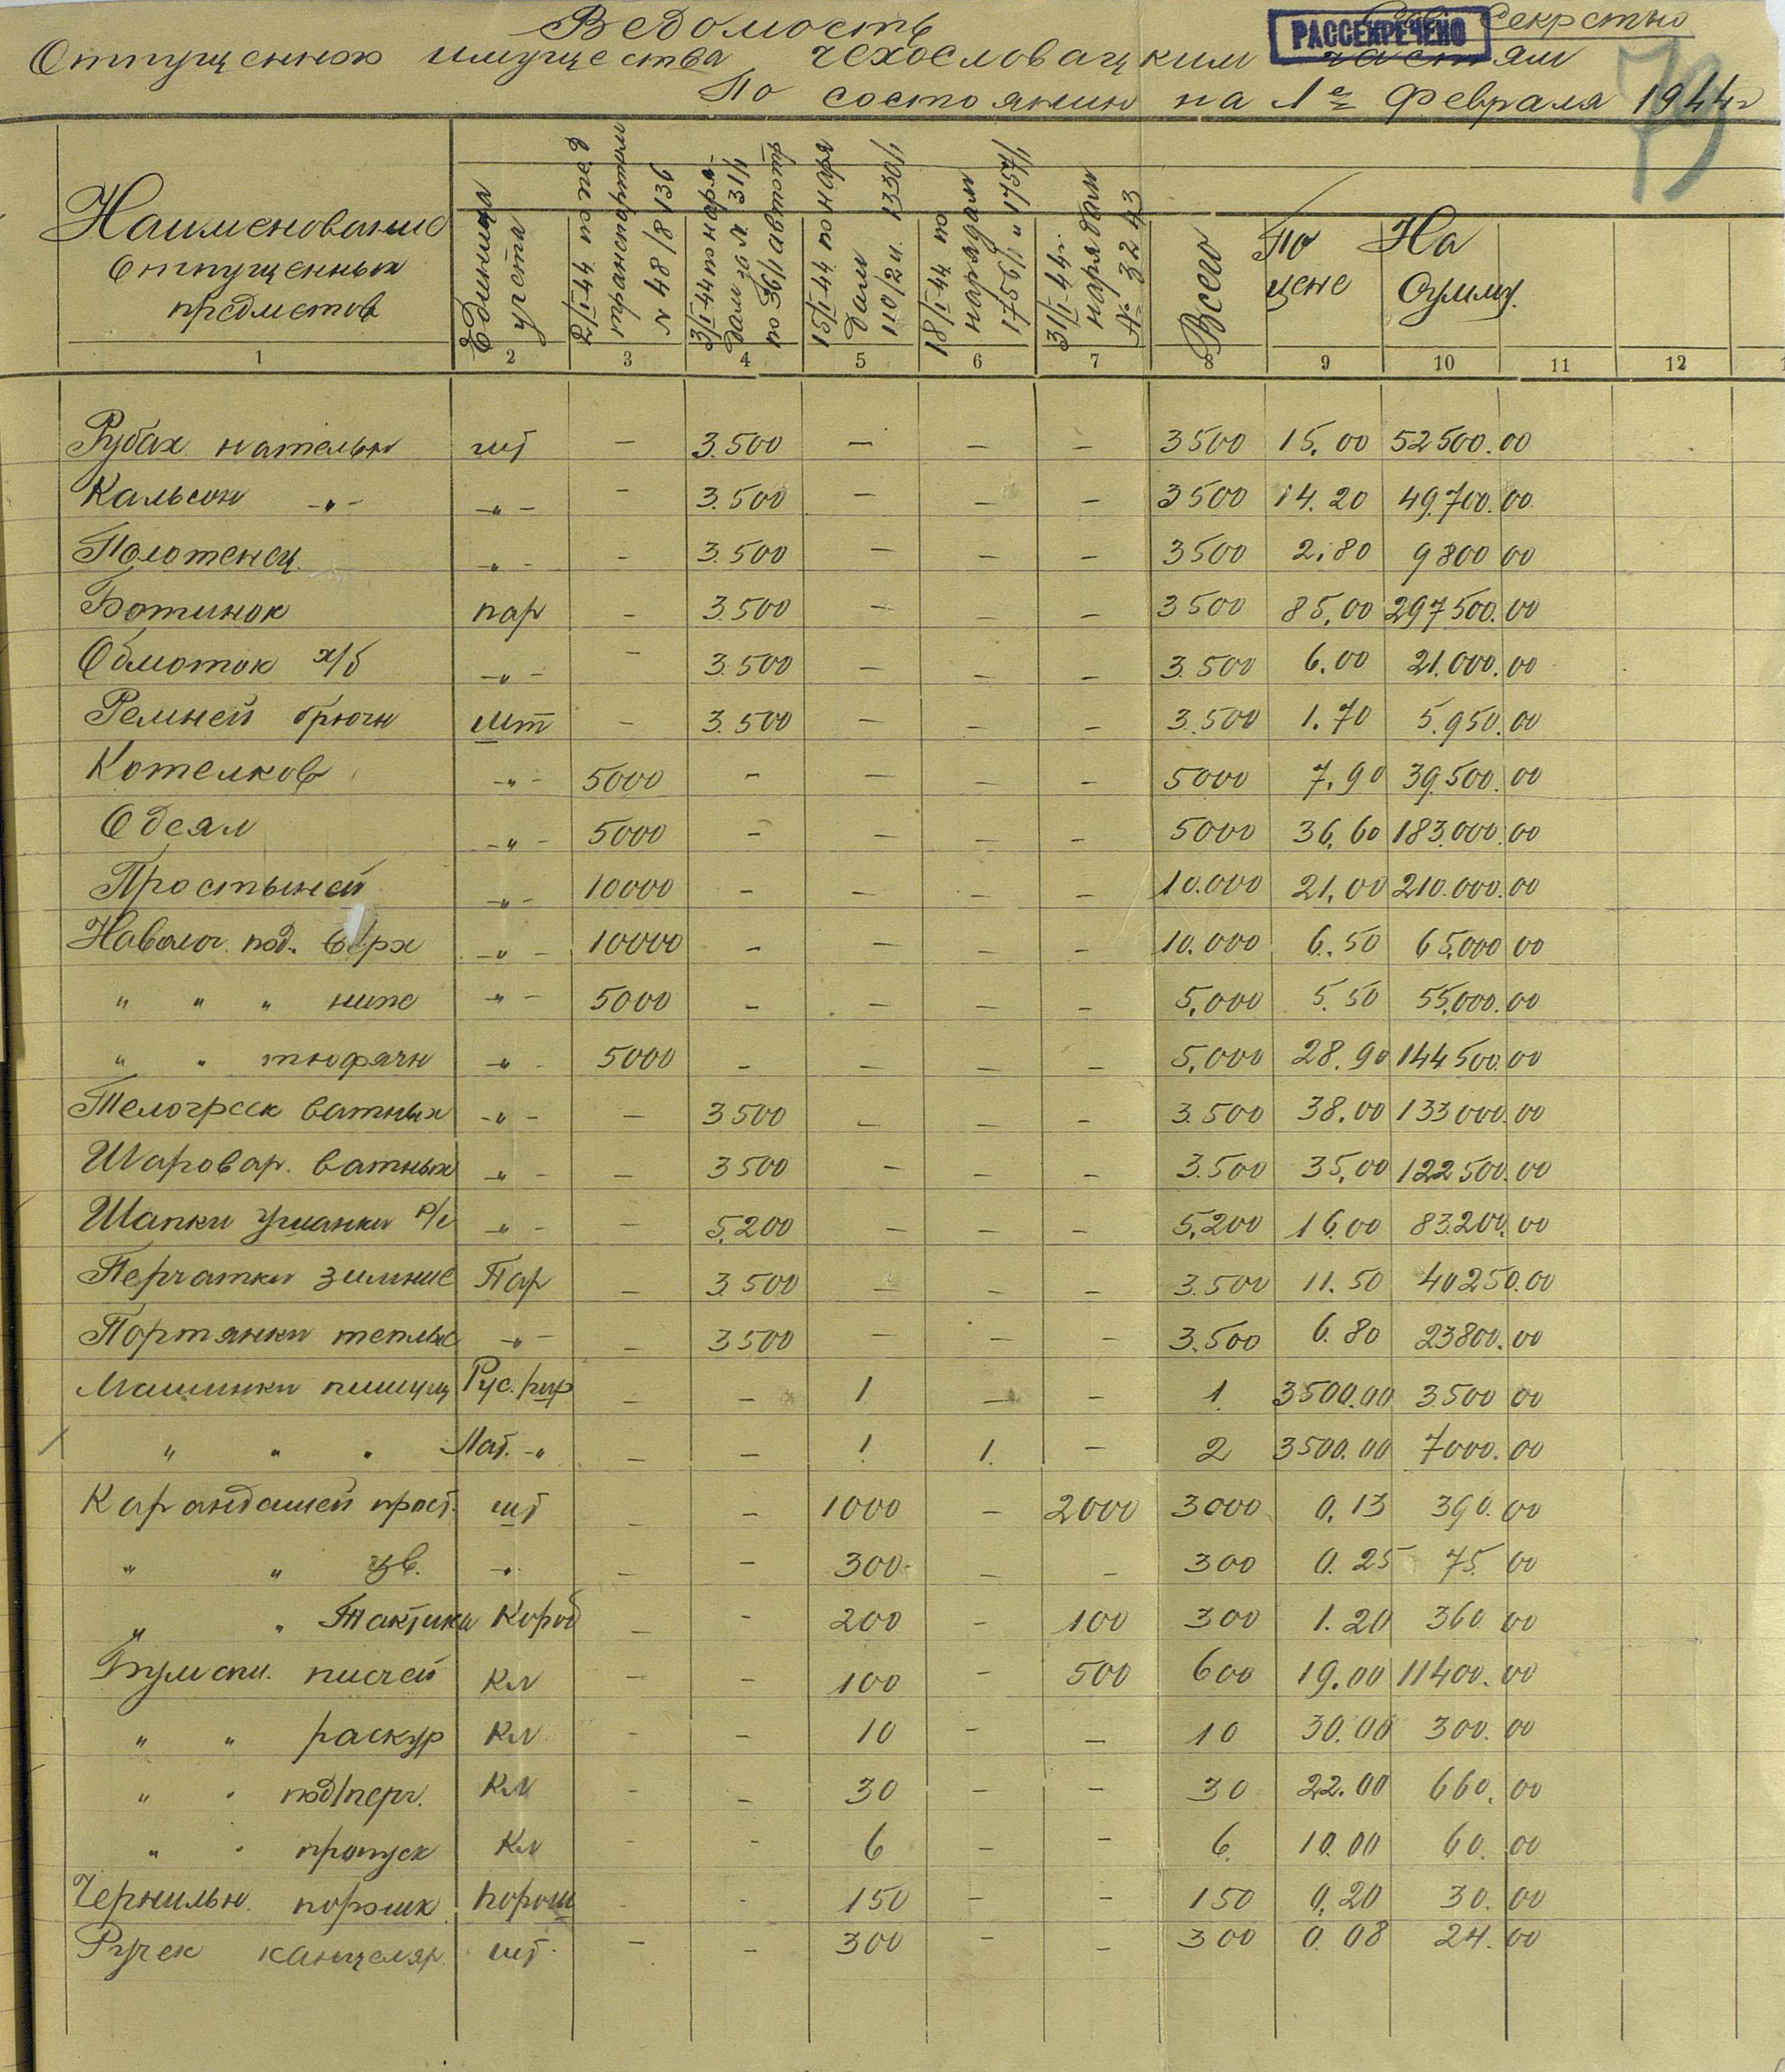 Ведомость Секретно
РАССЕКРЕЧЕНО
Отпущенного имущества чехословацким частям
По состоянию на 1е февраля 1944 г
79
Наименование отпущенных предметов | Единица учета | 2/I-44 по транспортам № 48/8136 | 3/I-44 по нарядам за № 31/1 по 36/1 автотр | 15/I-44 по нарядам 110/2 и 1330/1 | 18/I-44 по нарядам 1756/1 и 1757/1 | 31/I-44 г. нарядам № 3243 | Всего | По цене | На сумму
1 2 3 4 5 6 7 8 9 10 11 12
Рубах нательн шт - 3.500 - - - 3500 15.00 52500.00
Кальсон -"- -"- - 3.500 - - - 3500 14.20 49.700.00
Полотенец -"- - 3.500 - - - 3500 2.80 9800 00
Ботинок пар - 3.500 - - - 3500 85.00 297500.00
Обмоток х/б -"- - 3.500 - - - 3.500 6.00 21.000.00
Ремней брючн шт - 3.500 - - - 3.500 1.70 5.950.00
Котелков -"- 5000 - - - - 5000 7.90 39.500.00
Одеял -"- 5000 - - - - 5000 36.60 183.000.00
Простыней -"- 10000 - - - - 10.000 21.00 210.000.00
Наволоч. под. верх -"- 10000 - - - - 10.000 6.50 65.000 00
" " " ниж -"- 5000 - - - - 5.000 5.50 55.000.00
" " тюфячн -"- 5000 - - - - 5.000 28.90 144500.00
Телогреек ватных -"- - 3500 - - - 3.500 38.00 133000.00
Шаровар. ватных -"- - 3500 - - - 3.500 35.00 122500.00
Шапки ушанки р/с -"- - 5.200 - - - 5.200 16.00 83200.00
Перчатки зимние Пар - 3.500 - - - 3.500 11.50 40250.00
Портянки теплые -"- - 3500 - - - 3.500 6.80 23800.00
Машинки пишущ Рус. шр - - 1 - - 1 3500.00 3500 00
" " " Лат. -" - - 1 1. - 2 3500.00 7000.00
Карандашей прост. шт - - 1000 - 2000 3000 0.13 390.00
" " цв. -"- - - 300 - - 300 0.25 75.00
" " Тактика Короб - - 200 - 100 300 1.20 360 00
Бумаги. писчей Кл - - 100 - 500 600 19.00 11400.00
" " раскур Кл - - 10 - - 10 30.00 300.00
" " под/перг. Кл - - 30 - - 30 22.00 660.00
" " пропуск Кл - - 6 - - 6. 10.00 60.00
Чернильн. порошк порош - - 150 - - 150 0.20 30.00
Ручек канцеляр. шт. - - 300 - - 300 0.08 24.00